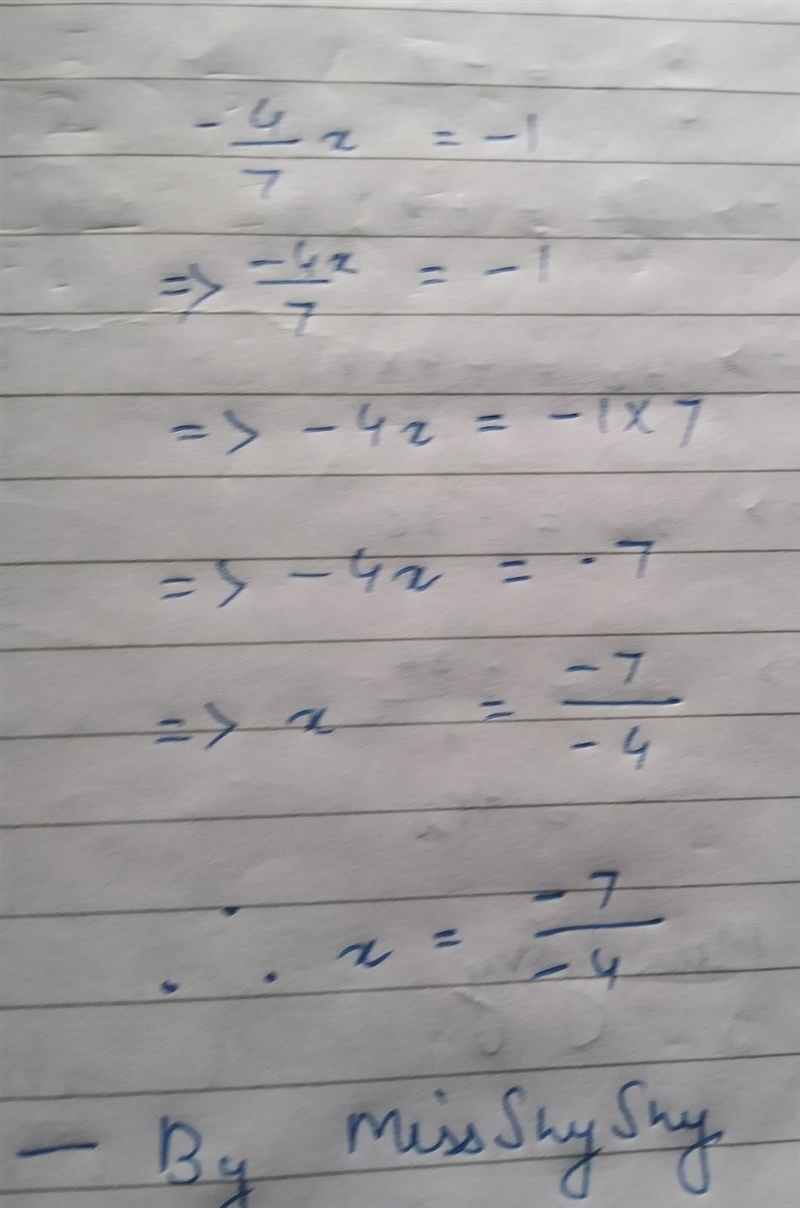 -4/7 x = -1
=> -4x/7 = -1
=> -4x = -1 x 7
=> -4x = -7
=> x = -7/-4
∴ x = -7/-4
— By MissShyShy